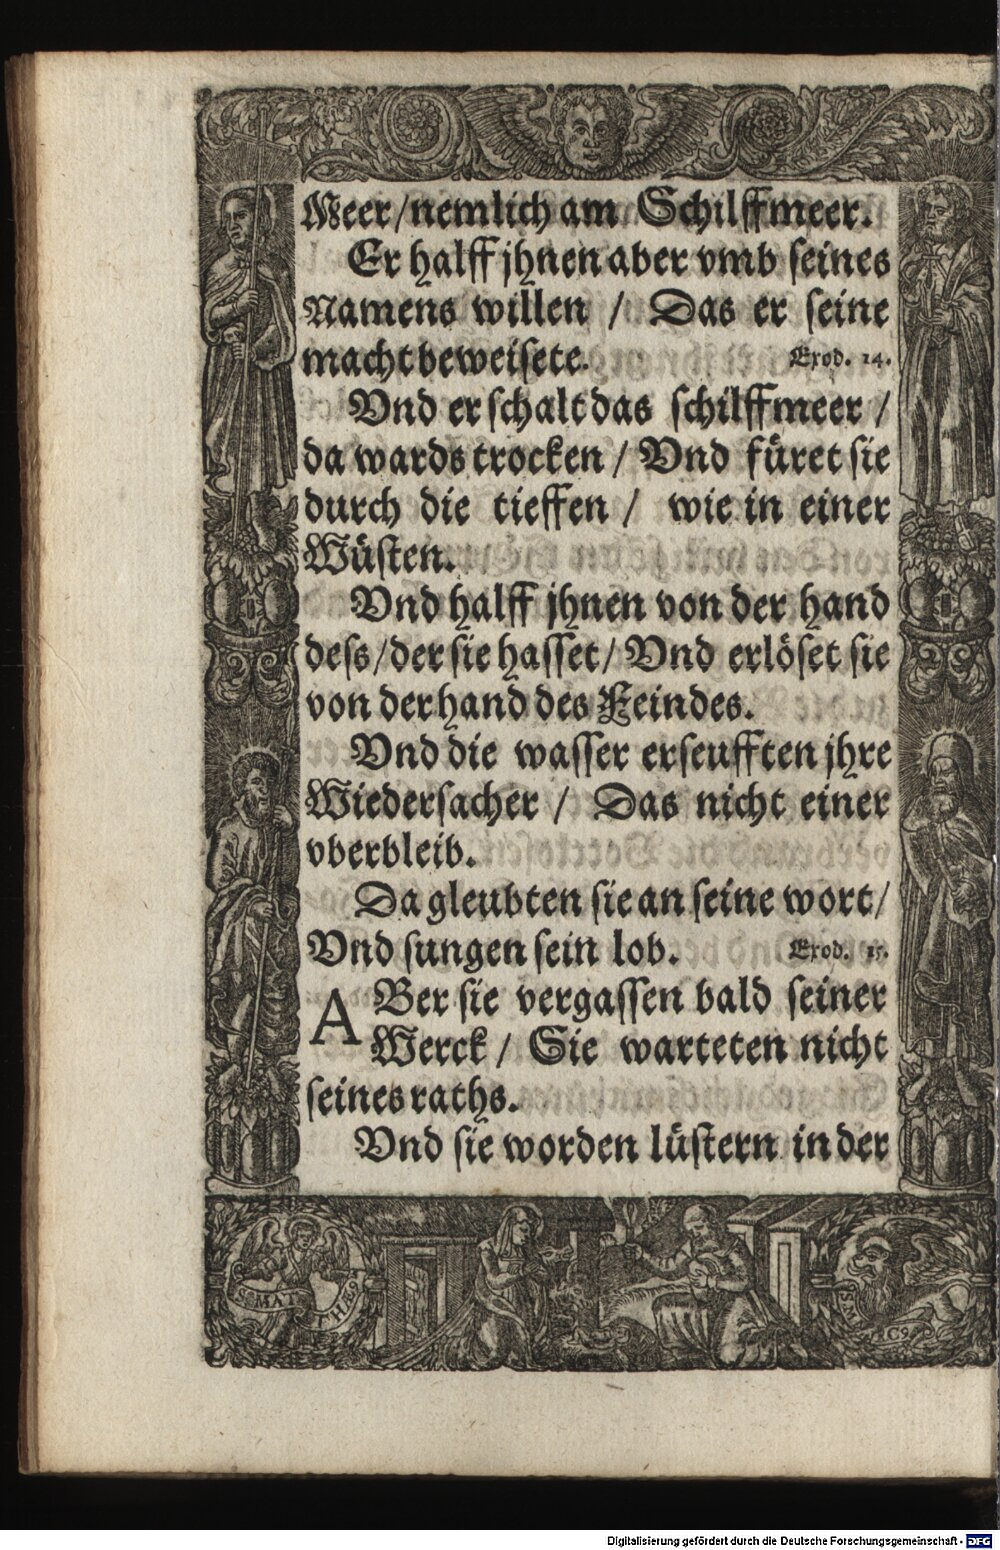 Meer/nemlich am Schilffmeer.
Er halff jhnen aber vmb seines
Namens willen / Das er seine
macht beweisete. Exod. 14.
Vnd er schalt das schilffmeer /
da wards trocken / Vnd füret sie
durch die tieffen / wie in einer
Wüsten.
Vnd halff jhnen von der hand
dess/der sie hasset/ Vnd erlöset sie
von der hand des Feindes.
Vnd die wasser erseufften jhre
Wiedersacher / Das nicht einer
vberbleib.
Da gleubten sie an seine wort/
Vnd sungen sein lob. Exod. 15.
ABer sie vergassen bald seiner
Werck / Sie warteten nicht
seines raths.
Vnd sie worden lüstern in der
S. MAT THÆS
Digitalisierung gefördert durch die Deutsche Forschungsgemeinschaft - DFG